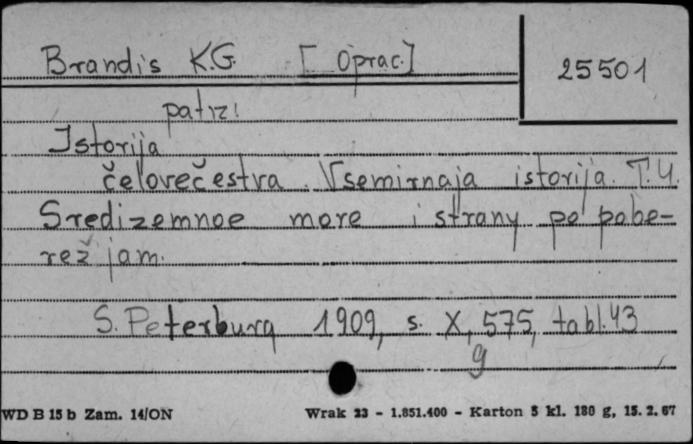 Brandis K.G. [Oprac.]
25501
patrz:
Istorija
čelovečestva. Vsemirnaja istorija. T.4.
Sredizemnoe more i strany po pobe-
rež jam.
S. Peterburg 1909, s. X, 575, tabl. 43
g
WD B 15 b Zam. 14/ON
Wrak 23 - 1.851.400 - Karton 5 kl. 180 g, 15. 2. 67